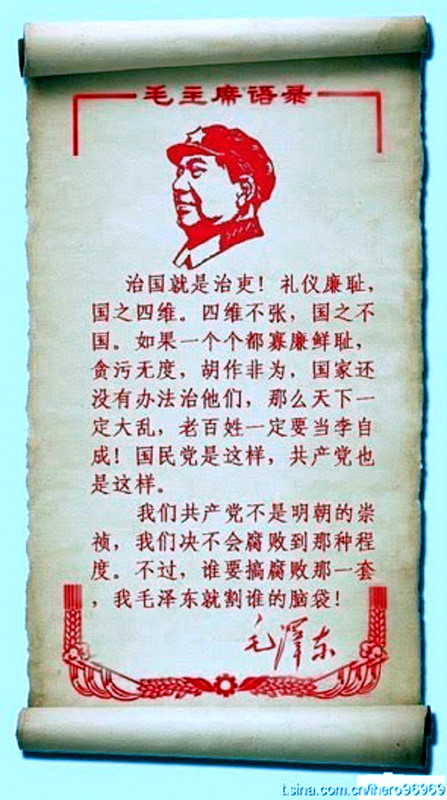 毛主席语录
治国就是治吏！礼仪廉耻，
国之四维。四维不张，国之不
国。如果一个个都寡廉鲜耻，
贪污无度，胡作非为，国家还
没有办法治他们，那么天下一
定大乱，老百姓一定要当李自
成！国民党是这样，共产党也
是这样。
我们共产党不是明朝的崇
祯，我们决不会腐败到那种程
度。不过，谁要搞腐败那一套
，我毛泽东就割谁的脑袋！
毛泽东
t.sina.com.cn/ihero96969